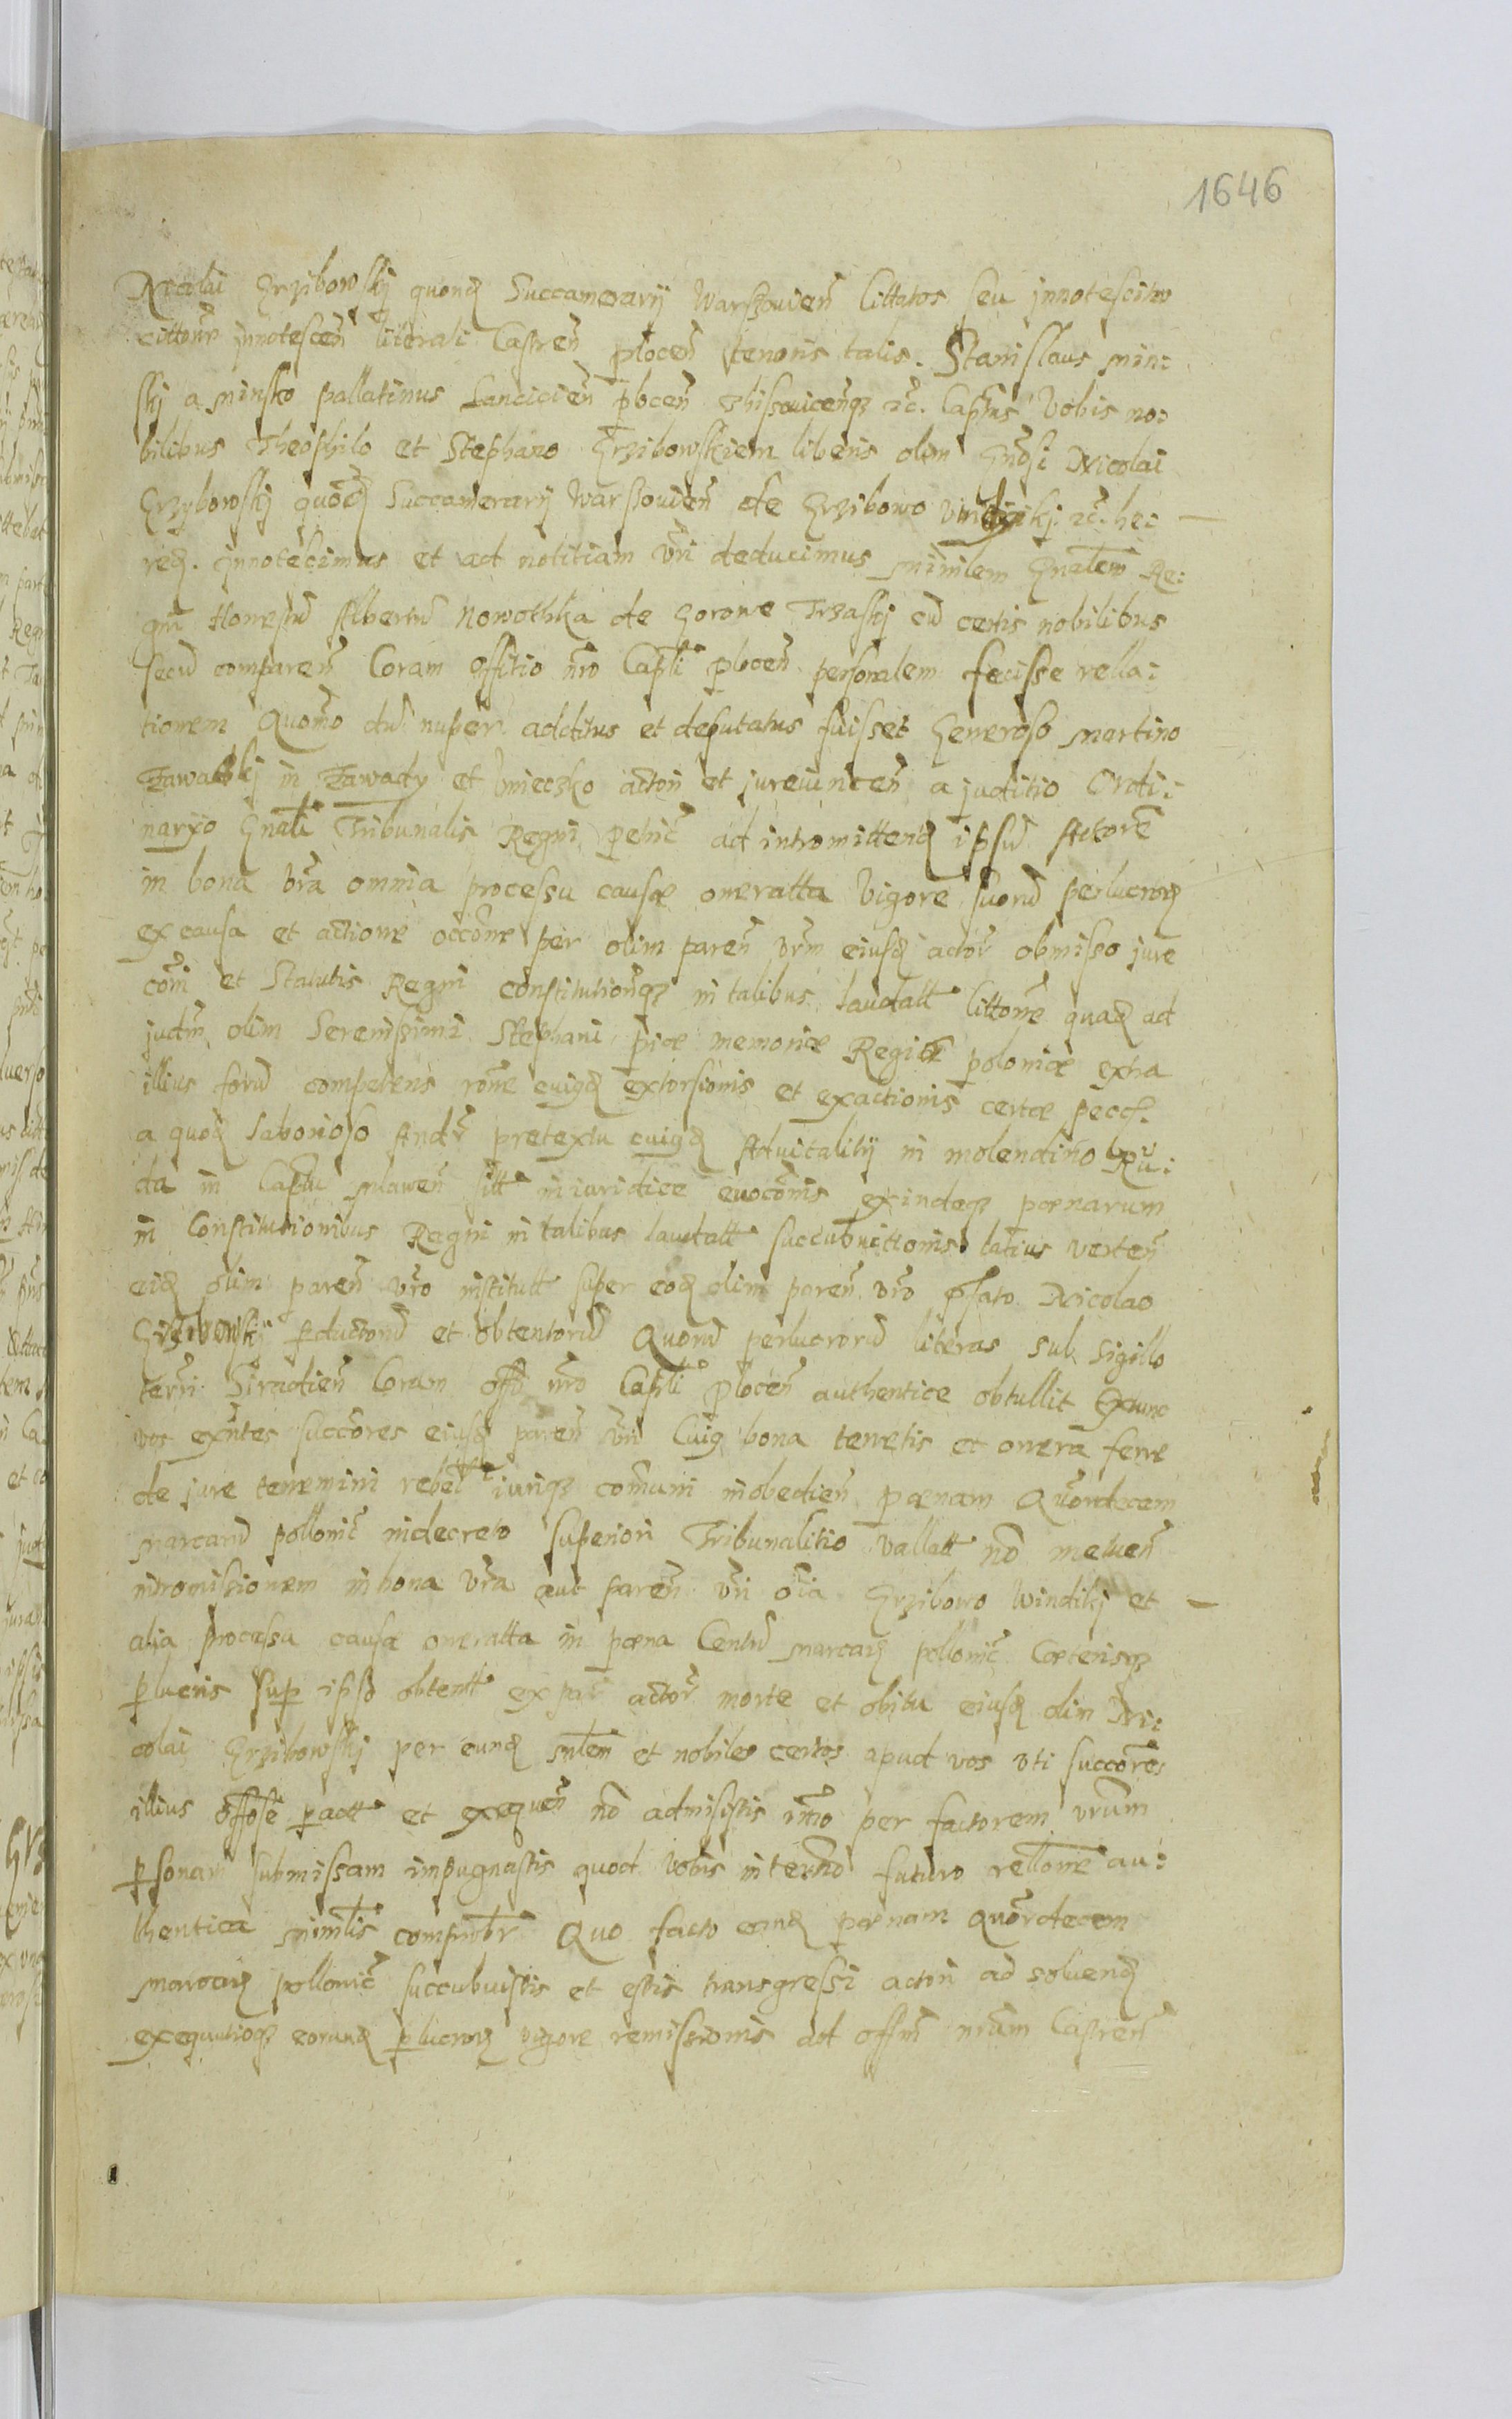 1646
Nicolai Grzibowskj quond Succamerarij Warszouien̄ Cittatos seu jnnotescito
cittone jnnotescen̄ literali Castren̄ plocen̄ tenoris talis. Stanislaus Min:
skj a Minsko pallatinus Lancicien̄ plocen̄ &c. Captns Vobis no:
bilibus Theophilo et Stephano Grzibowskiem liberis olim Gnosi Nicolai
Grzybowskj quond Succamerarij Warszouien̄ de Grzibowo &c. he:
red. jnnotescimus et ad notitiam vri deducimus Minilem Gnalem Re:
gni Honestu Albertu Nowothka de Gorowe Trzaskj cu certis nobilibus
secu comparen̄ Coram Offitio nro Capli plocen̄ personalem fecisse rella:
tionem Quomo du nuper additus et deputatus fuisset Generoso Martino
Zawadskj in Zawady et actori et jureiuincen̄ a juditio Ordi:
naryo Gnali Tribunalis Regni ad intromittend ipsu Actore
in bona vra omnia processu causæ oneratta Vigore suoru perlucror
ex causa et actione occōne per olim paren̄ vrm eiusd actor obmisso jure
com̄i et Statutis Regni constitutionq in talibus laudatt littone quad ad
judm olim Serenissimi Stephani piæ memoriæ Regis poloniæ extra
illius foru competens rōne cuiqd extorsionis et exactionis certæ pecc.
a quod laborioso Andr pretextu cuiqd Aduitalitij in molendino Ru:
da in Captu Mlawen̄ sitt iniuridice euocōnis exindeq pœnarum
in Constitutionibus Regni in talibus laudatt succubuittionis latius verten̄
eid olim paren̄ vro institutt super eod olim paren̄ vro pfato Nicolao
Grzibowskij pductoru et obtentoru Quoru perlucroru literas sub sigillo
terri Siradien̄ Coram offo nro Capli Plocen̄ authentice obtullit Extunc
vos exntes succores eiusd paren̄ vri Cuiq bona tenetis et onera ferre
de jure tenemini rebel iuriq comuni inobedien̄ pœnam Quordecem
marcaru pollonic indecreto superiori Tribunalitio vallatt no metuen̄
intromissionem in bona vra aut paren̄ vri oia Grzibowo Windikj et
alia processu causæ oneratta in pœna Centu marcar pollonic Cœterisq
plucris sup ipso obtentt ex par actor morte et obitu eiusd olim Ni:
colai Grzibowskj per eund Mlem et nobiles certos apud vos vti succores
illius offose pactt et exequen̄ no admisistis immo per factorem vrum
psonam submissam impugnastis quod vobis in termo futuro rellone au:
thentica Minilis comprobr Quo facto eand pœnam Quordecem
marcar pollonic succubuistis et estis transgressi actori ad soluend
exequutioq eorund plucror vigore remissionis ad offm nrum Castren̄